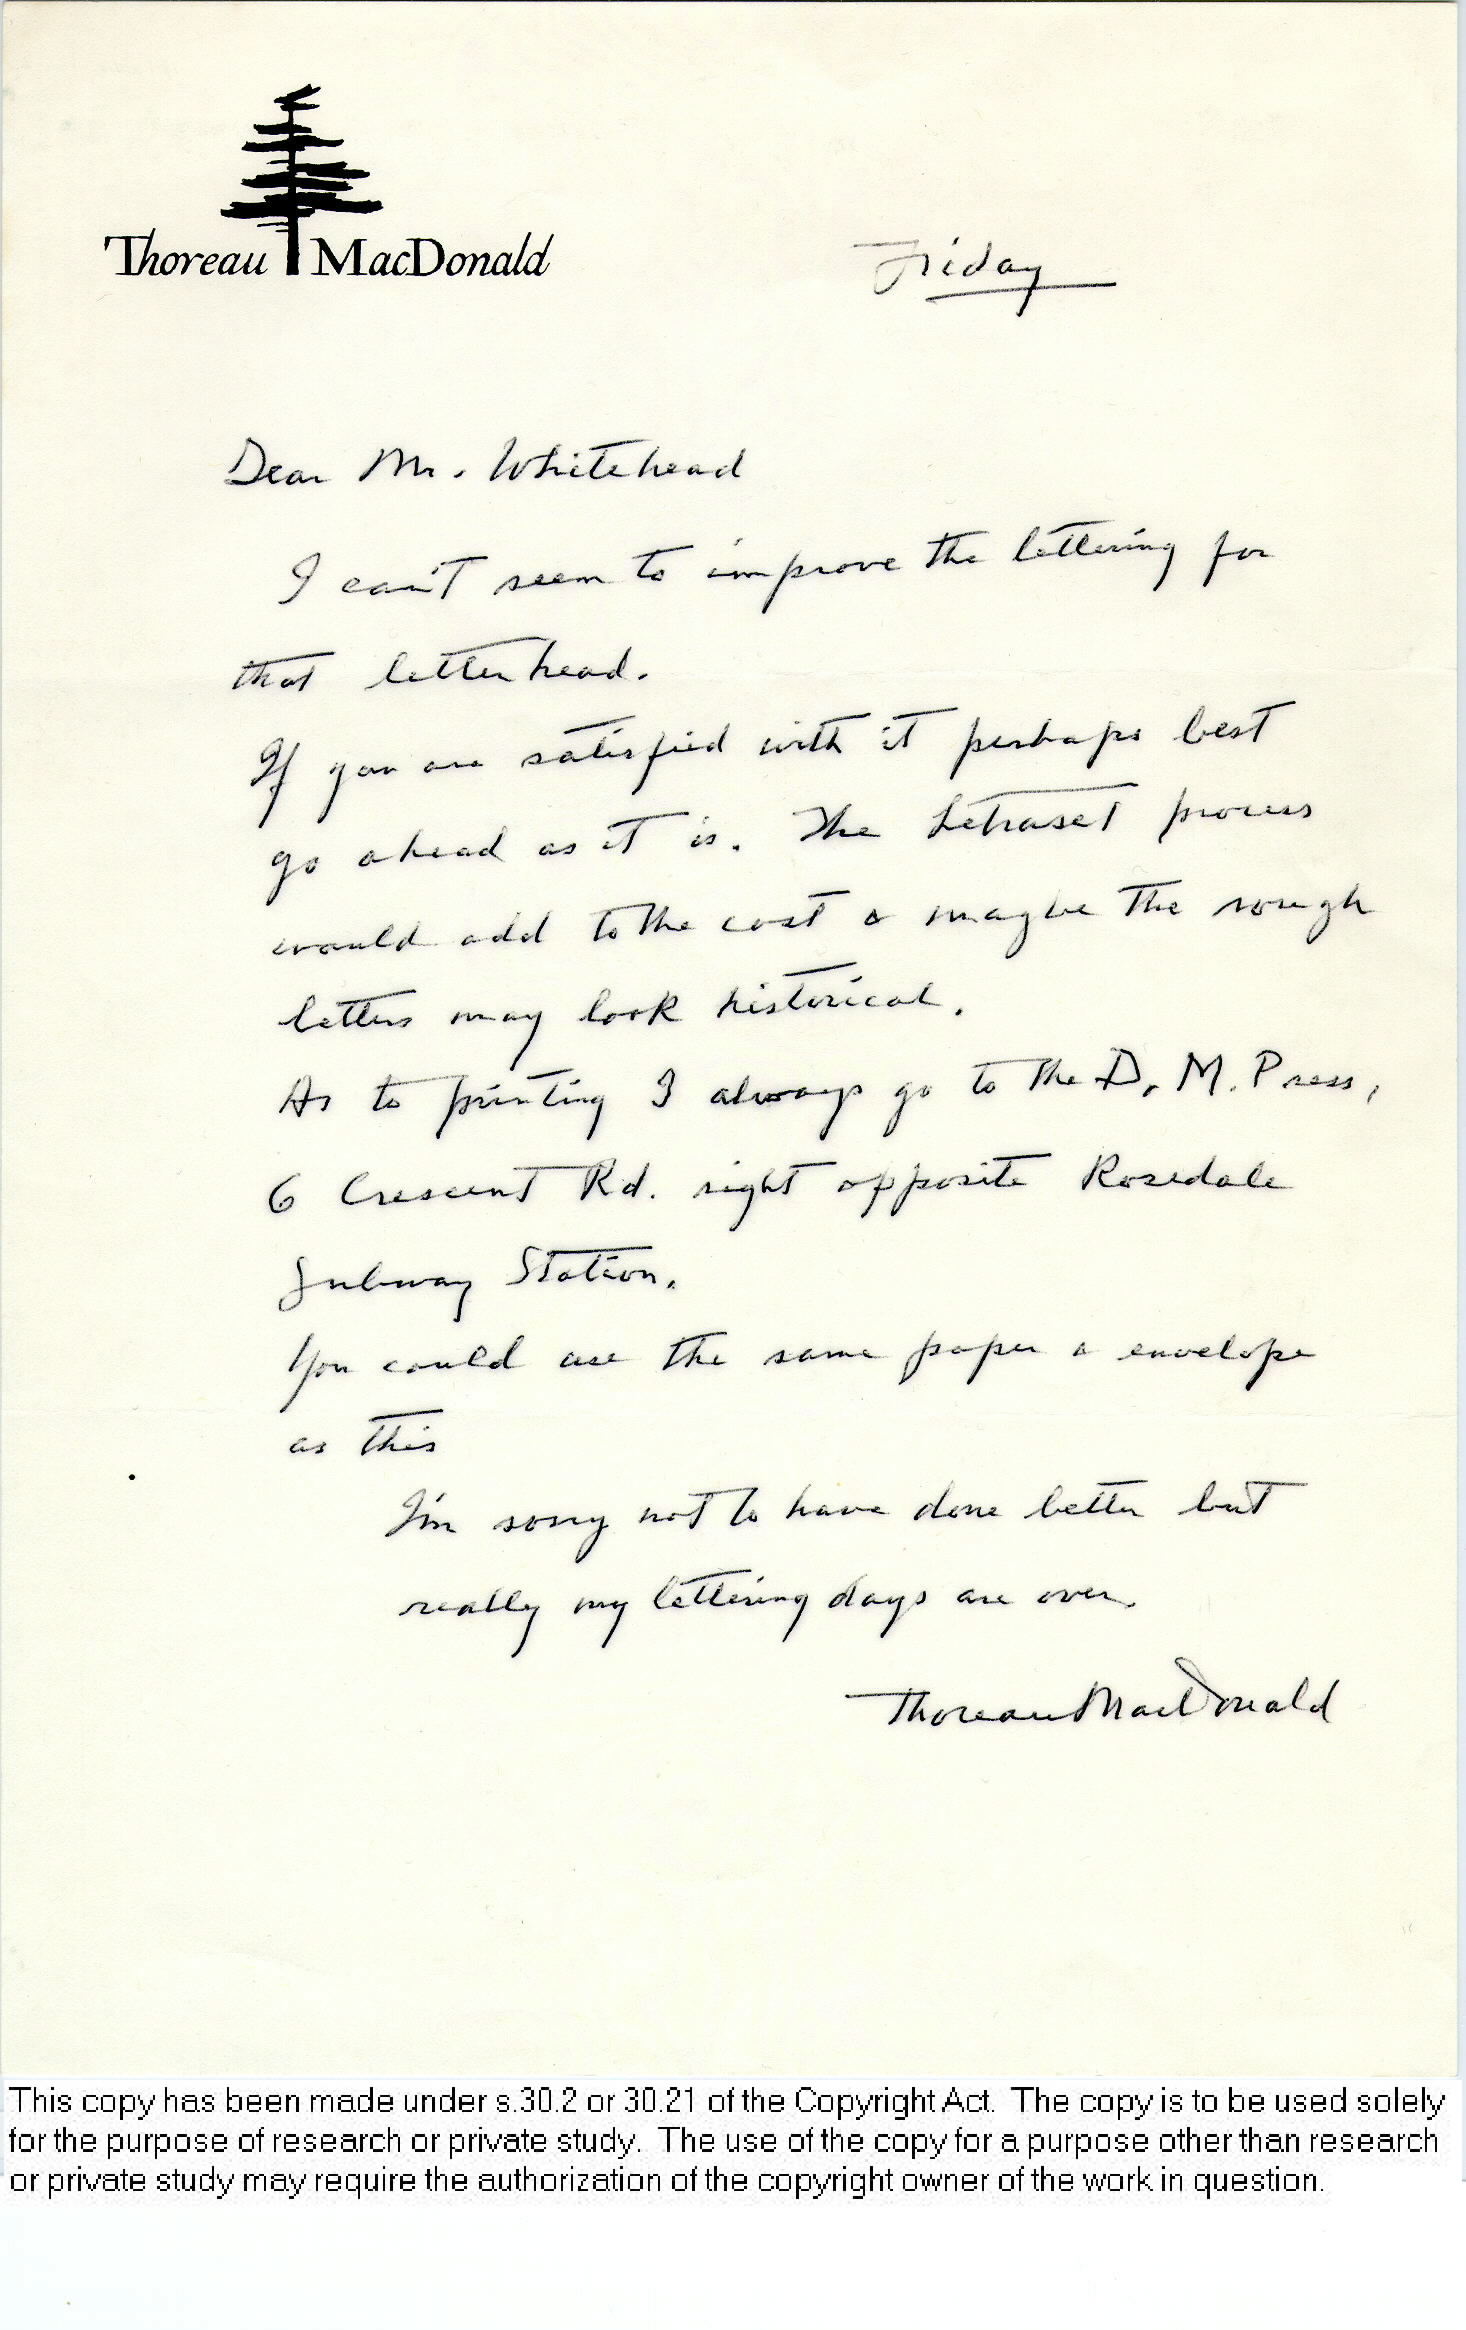 Thoreau MacDonald
Friday
Dear Mr. Whitehead
I can't seem to improve the lettering for
that letterhead.
If you are satisfied with it perhaps best
go ahead as it is. The Letraset process
would add to the cost & maybe the rough
letters may look historical.
As to printing I always go to the D. M. Press,
6 Crescent Rd. right opposite Rosedale
Subway Station.
You could use the same paper & envelope
as this
I'm sorry not to have done better but
really my lettering days are over.
Thoreau MacDonald
This copy has been made under s.30.2 or 30.21 of the Copyright Act. The copy is to be used solely
for the purpose of research or private study. The use of the copy for a purpose other than research
or private study may require the authorization of the copyright owner of the work in question.